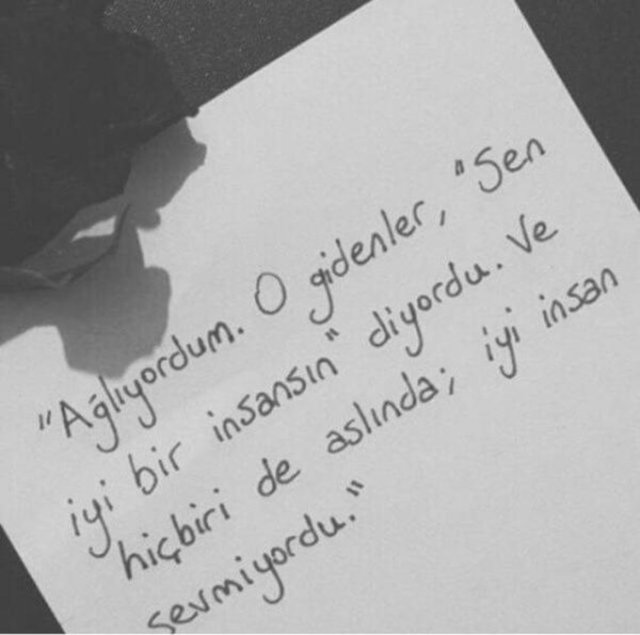 "Ağlıyordum. O gidenler, "Sen
iyi bir insansın" diyordu. Ve
hiçbiri de aslında; iyi insan
sevmiyordu."